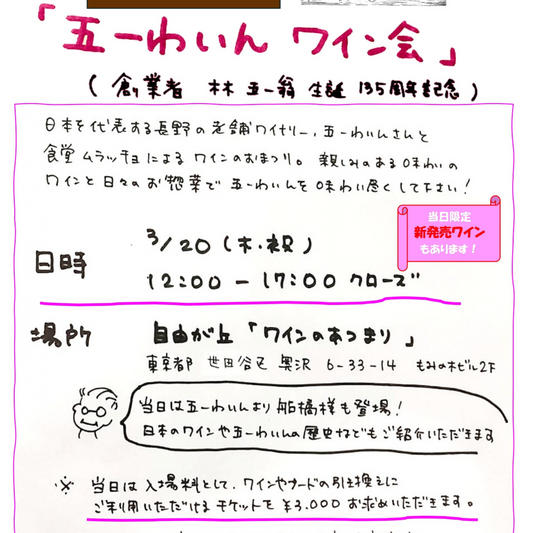 「五一わいん ワイン会」
(創業者 林 五一翁 生誕 135周年記念)
日本を代表する長野の老舗ワイナリー、五一わいんさんと
食堂ムラッチョによる ワインのおまつり。親しみのある味わいの
ワインと日々のお惣菜で 五一わいんを味わい尽くして下さい!
当日限定
新発売ワイン
もあります!
日時
3/20(木・祝)
12:00 - 17:00 クローズ
場所
自由が丘「ワインのあつまり」
東京都 世田谷区 奥沢 6-33-14 もみの木ビル2F
当日は五一わいんより 船橋様も登場!
日本のワインや五一わいんの歴史などもご紹介いただきます
※ 当日は入場料として、ワインやフードの引き換えに
ご利用いただけるチケットを ¥3,000 お求めいただきます。